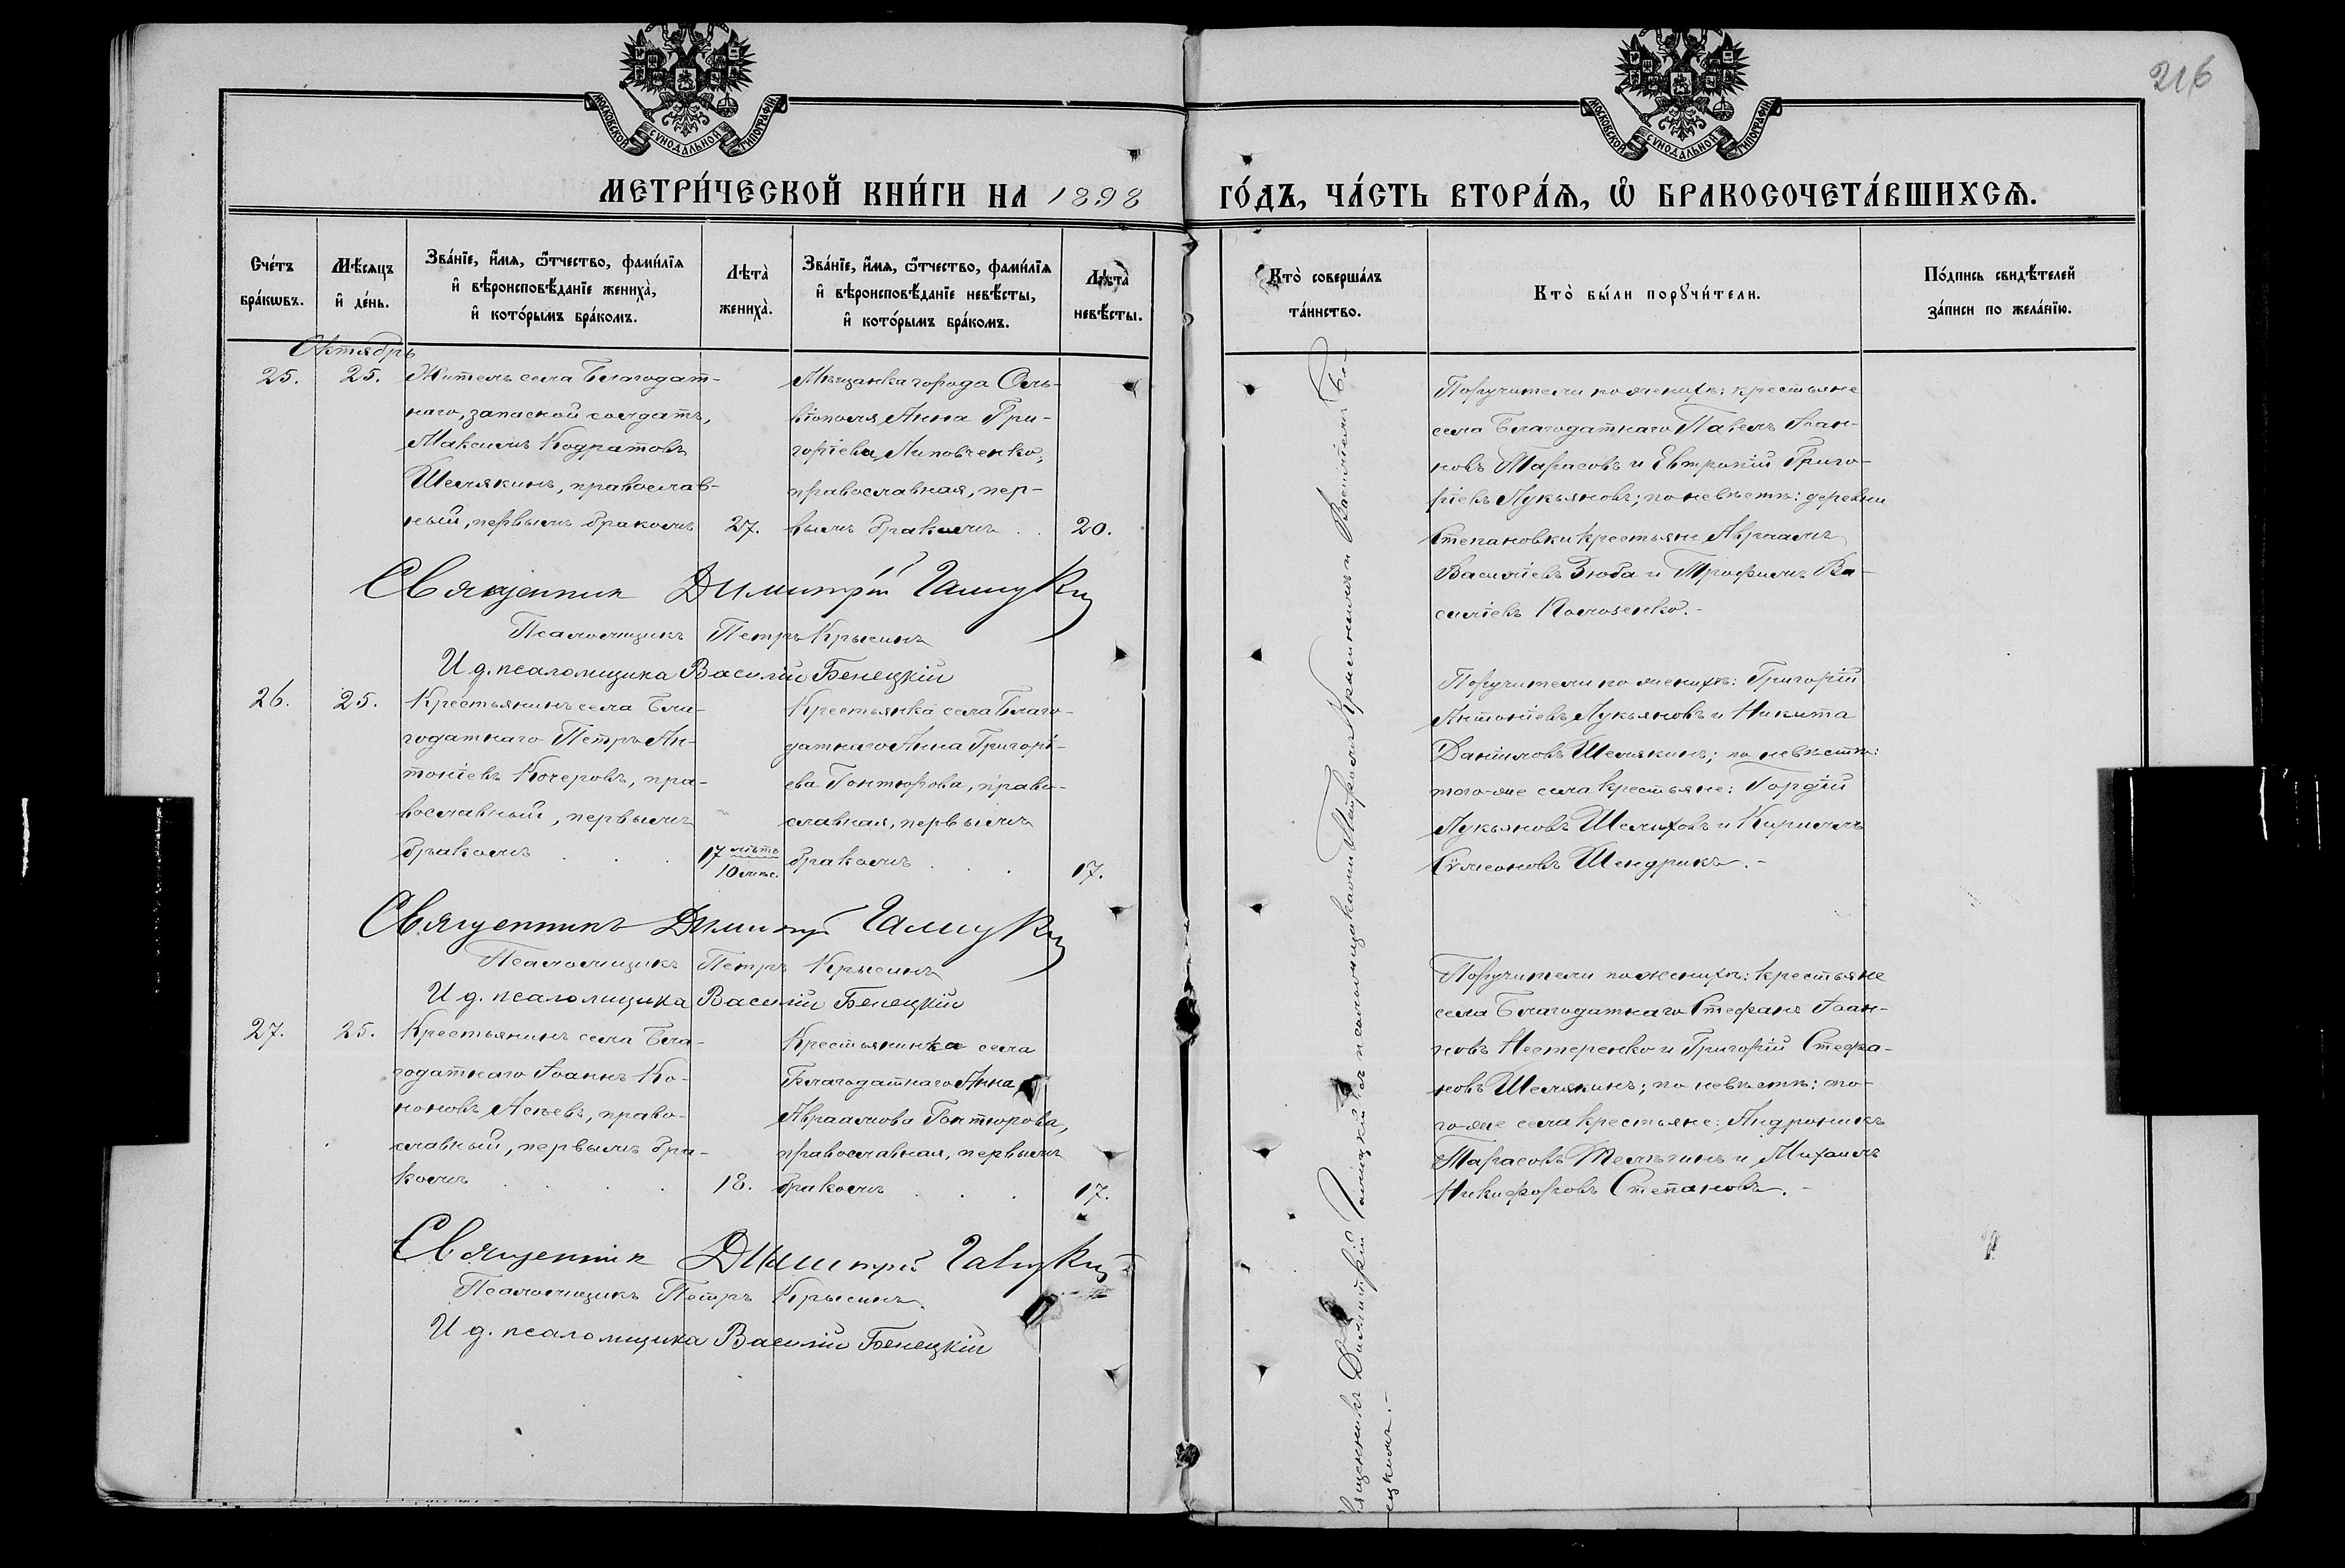 216
МОСКОВСКОЙ СУНОДАЛЬНОЙ ТИПОГРАФІИ
МОСКОВСКОЙ СУНОДАЛЬНОЙ ТИПОГРАФІИ
МЕТРИ́ЧЕСКОЙ КНИ́ГИ НА 1898 ГО́ДЪ, ЧА́СТЬ ВТОРА́Ѧ, Ѽ БРАКОСОЧЕТА́ВШИХСѦ.
Сче́тъ
бра́кωвъ.
Мѣ́сяцъ
и҆ де́нь.
Зва́нїе, и҆́мя, ѻ҆́тчество, фами́лїя
и҆ вѣроисповѣ́данїе жениха̀,
и҆ кото́рымъ бра́комъ.
Лѣта̀
жениха̀.
Зва́нїе, и҆́мя, ѻ҆́тчество, фами́лїя
и҆ вѣроисповѣ́данїе невѣ́сты,
и҆ кото́рымъ бра́комъ.
Лѣта̀
невѣ́сты.
Кто̀ соверша́лъ
та́инство.
Кто̀ бы́ли порꙋчи́тели.
По́дпись свидѣ́телей
за́писи по жела́нїю.
Октябрь
25. 25.
Житель села Благодат-
наго, запасной солдатъ,
Максимъ Кодратовъ
Шемякинъ, православ-
ный, первымъ бракомъ 27.
Мѣщанка города Оль-
віополя Анна Гри-
горіева Липовченко,
православная, пер-
вымъ бракомъ . . 20.
Поручители по женихѣ: крестьяне
села Благодатнаго Павелъ Іоан-
новъ Тарасовъ и Евтропій Григо-
ріевъ Лукьяновъ; по невѣстѣ: деревни
Степановки крестьяне Авраамъ
Василіевъ Зюба и Трофимъ Ва-
силіевъ
Священник Димитрій Галицкій
Псаломщикъ Петръ Крысинъ
И д. псаломщика Василій Бенецкій
26. 25.
Крестьянинъ села Бла-
годатнаго Петръ Ан-
тоніевъ Кочеровъ, пра-
вославный, первымъ
бракомъ . . . 17 лѣтъ
10 мѣс.
Крестьянка села Благо-
датнаго Анна Григорі-
ева Гонтюрова, право-
славная, первымъ
бракомъ . . . 17.
Поручители по женихѣ: Григорій
Антоніевъ Лукьяновъ и Никита
Даниловъ Шемякинъ; по невѣстѣ:
того-же села крестьяне: Гордій
Лукьяновъ Шелиховъ и Кириллъ
Сѵмеоновъ Шендрикъ. -
Священникъ Димитрій Галицкій
Псаломщикъ Петръ Крысинъ
И д. псаломщика Василій Бенецкій
27. 25.
Крестьянинъ села Бла-
годатнаго Іоаннъ Ко-
ноновъ право-
славный, первымъ бра-
комъ . . . . 18.
Крестьянинка села
Благодатнаго Анна
Авраамова Гонтюрова,
православная, первымъ
бракомъ . . . 17.
Поручители по женихѣ: крестьяне
села Благодатнаго Стефанъ Іоан-
новъ Нестеренко и Григорій Стефа-
новъ Шемякинъ; по невѣстѣ: то-
го-же села крестьяне: Андроникъ
Тарасовъ и Михаилъ
Никифоровъ Степановъ. -
Священник Димитрій Галицкій
Псаломщикъ Петръ Крысинъ
И д. псаломщика Василій Бенецкій
Священникъ Димитрій Галицкій съ псаломщиками Петромъ Крысинымъ и Василіемъ Бе-
нецкимъ. -